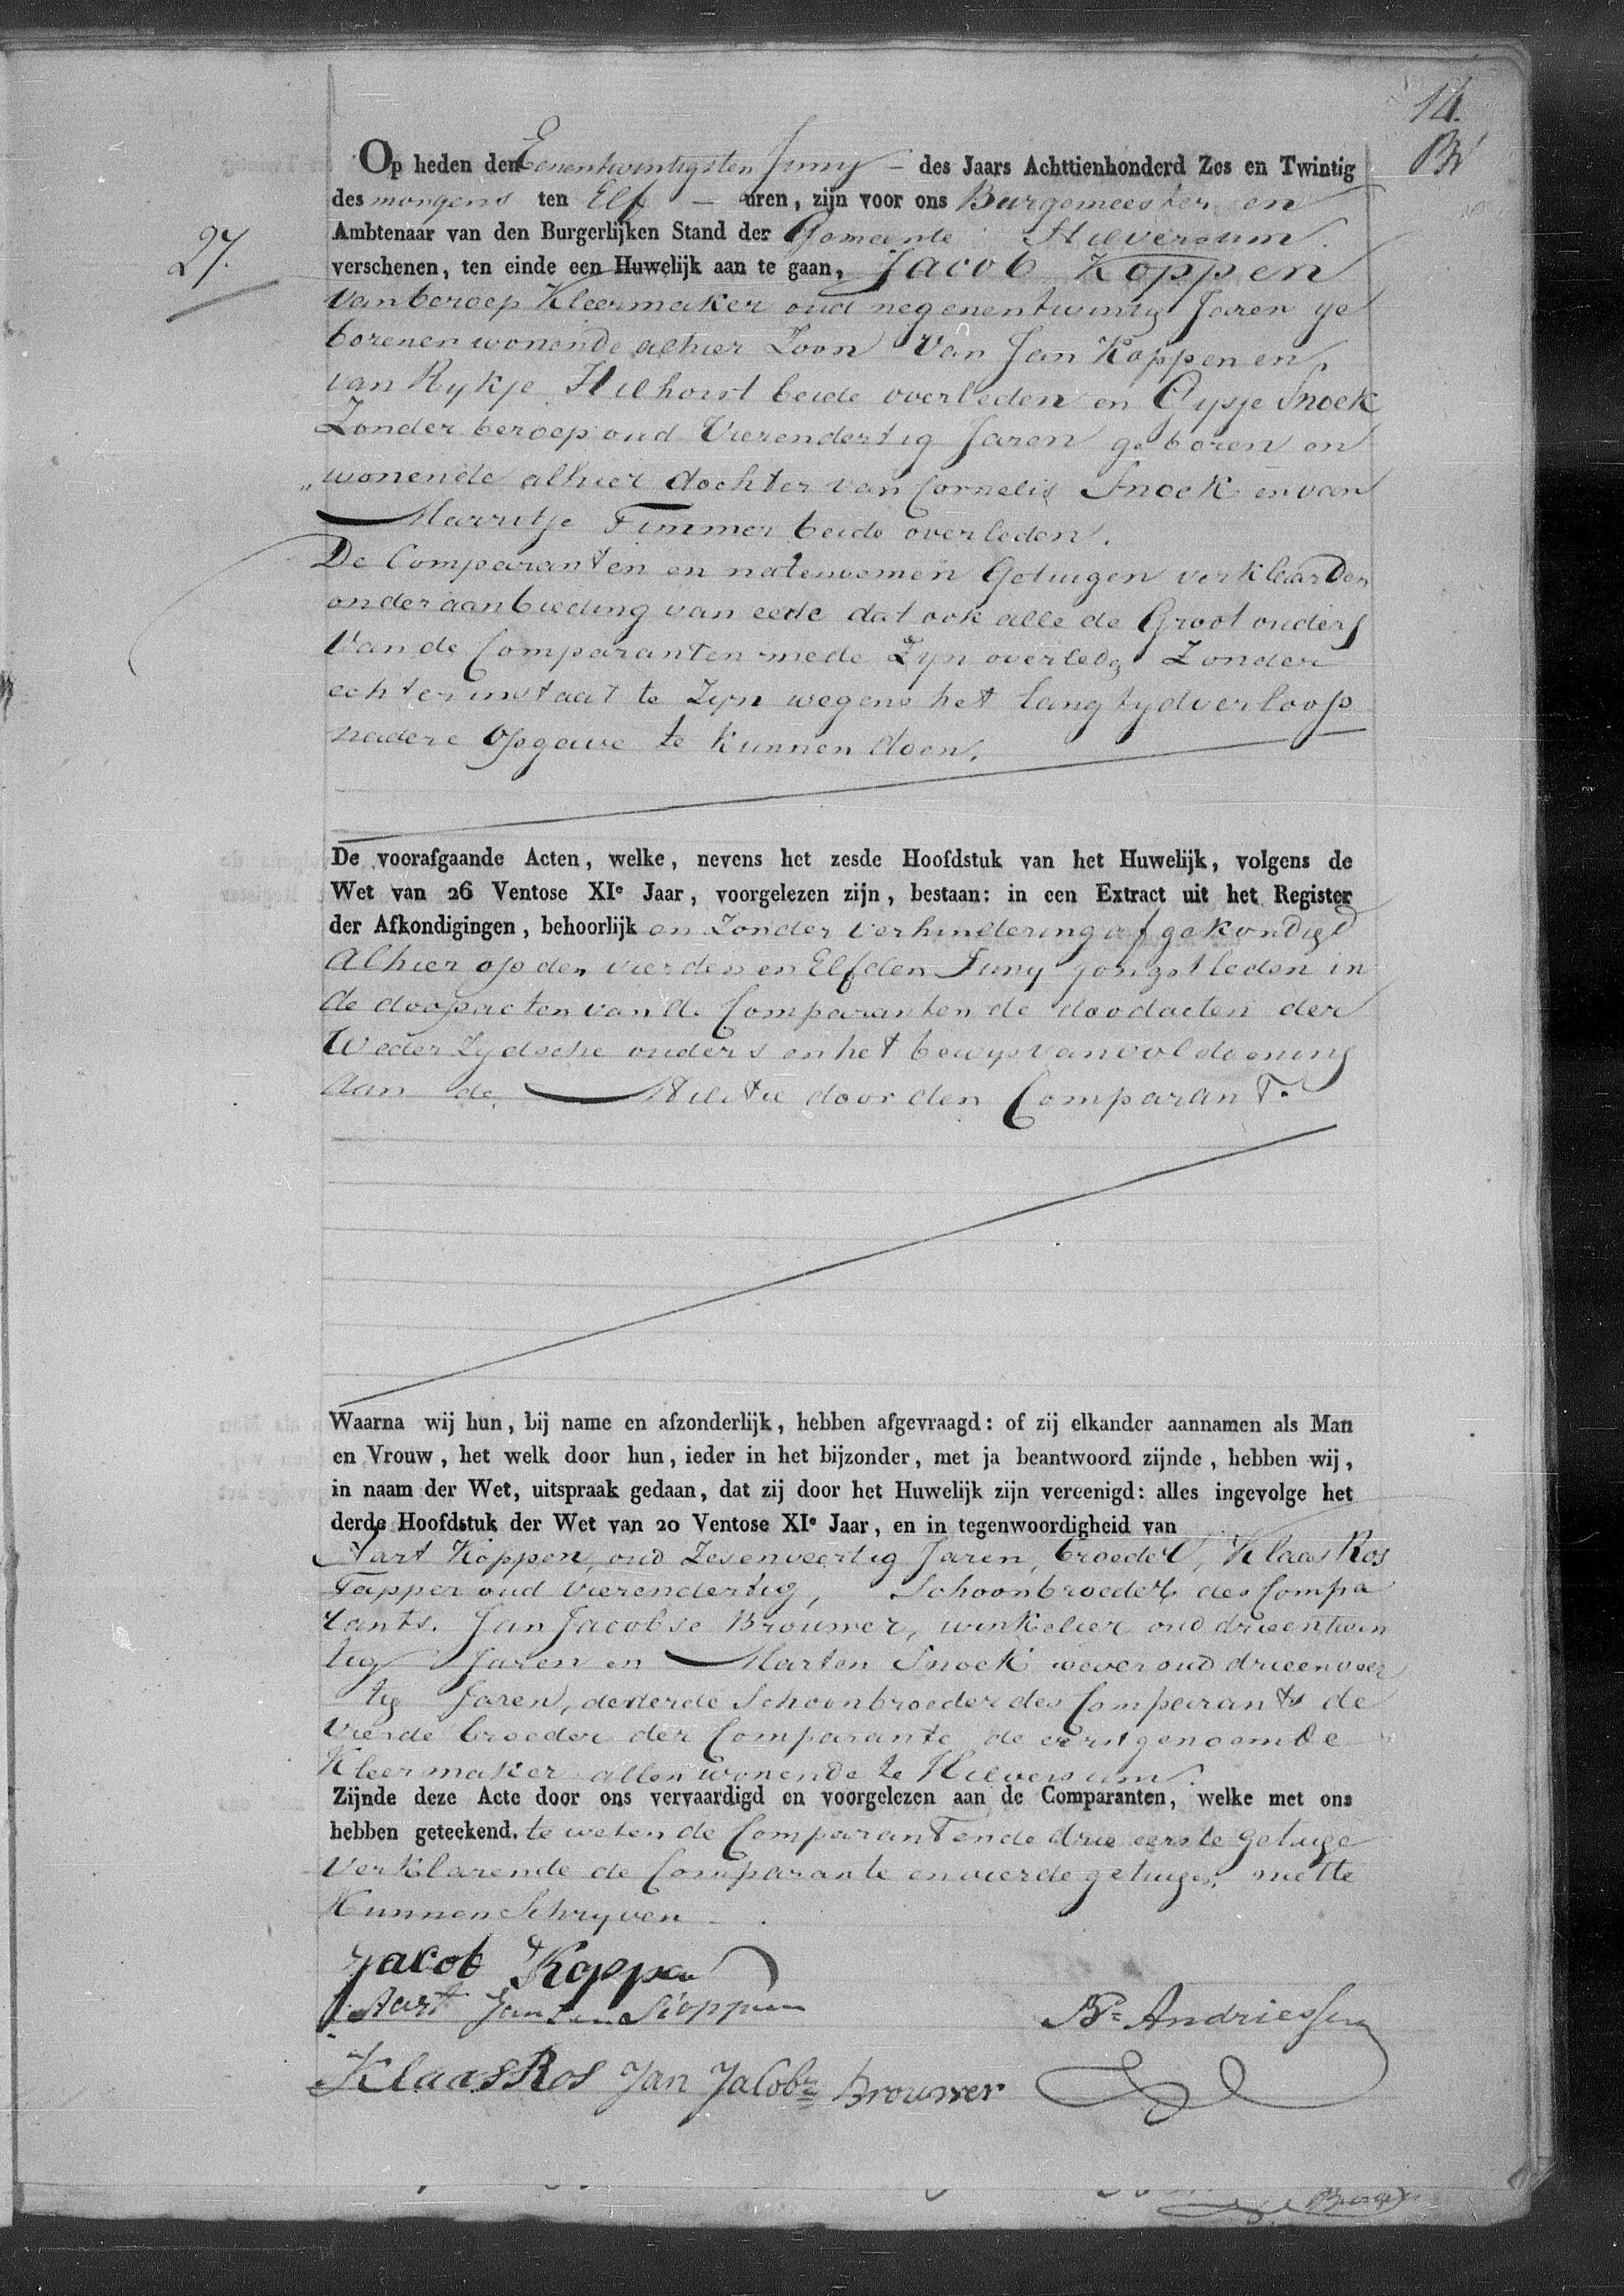 14.
27.
Op heden den Eenentwintigsten Juny – des Jaars Achttienhonderd Zes en Twintig
des morgens ten Elf – uren, zijn voor ons Burgemeester en
Ambtenaar van den Burgerlijken Stand der Gemeente Hilversum
verschenen, ten einde een Huwelijk aan te gaan, Jacob Koppen
van beroep Kleermaker oud negenentwintig Jaren ge
boren en wonende alhier Zoon van Jan Koppen en
van Rykje Hilhorst beide overleden en Gysje Snoek
Zonder beroep oud Vierendertig Jaren geboren en
„ wonende alhier dochter van Cornelis Snoek en van
Marritje Timmer beide overleden.
De Comparanten en natenoemen Getuigen verklaarden
onder aanbieding van eede dat ook alle de Groot ouders
Van de Comparanten mede Zyn overleden Zonder
echter instaat te Zyn wegens het lang tydverloop
nadere opgave te kunnen doen.
De voorafgaande Acten, welke, nevens het zesde Hoofdstuk van het Huwelijk, volgens de
Wet van 26 Ventose XIe Jaar, voorgelezen zijn, bestaan: in een Extract uit het Register
der Afkondigingen, behoorlijk en Zonder verhindering afgekondigd
Alhier op den vierden en Elfden Juny jongstleden in
de doopacten van de Comparanten de doodacten der
Wederzydsche ouders en het bewys van voldoening
Aan de Militie door den Comparant.
Waarna wij hun, bij name en afzonderlijk, hebben afgevraagd: of zij elkander aannamen als Man
en Vrouw, het welk door hun, ieder in het bijzonder, met ja beantwoord zijnde, hebben wij,
in naam der Wet, uitspraak gedaan, dat zij door het Huwelijk zijn vereenigd: alles ingevolge het
derde Hoofdstuk der Wet van 20 Ventose XIe Jaar, en in tegenwoordigheid van
Aart Koppen, oud Zesenveertig Jaren, broeder, Klaas Ros
Tapper oud vierendertig, Schoonbroeder des Compa
rants. Jan Jacobse Brouwer, winkelier oud drieentwin
tig Jaren en Marten Snoek wever oud drieenveer
tig Jaren, de derde Schoonbroeder des Comparants de
vierde broeder der Comparante de eerstgenoemde
Kleermaker allen wonende te Hilversum.
Zijnde deze Acte door ons vervaardigd en voorgelezen aan de Comparanten, welke met ons
hebben geteekend. te weten de Comparant en de drie eerste getuige
verklarende de Comparante en vierde getuigen niet te
Kunnen Schryven.
Jacob Koppen
Aart Koppen
Andriessen
Klaas Ros Jan Jacobz Brouwer